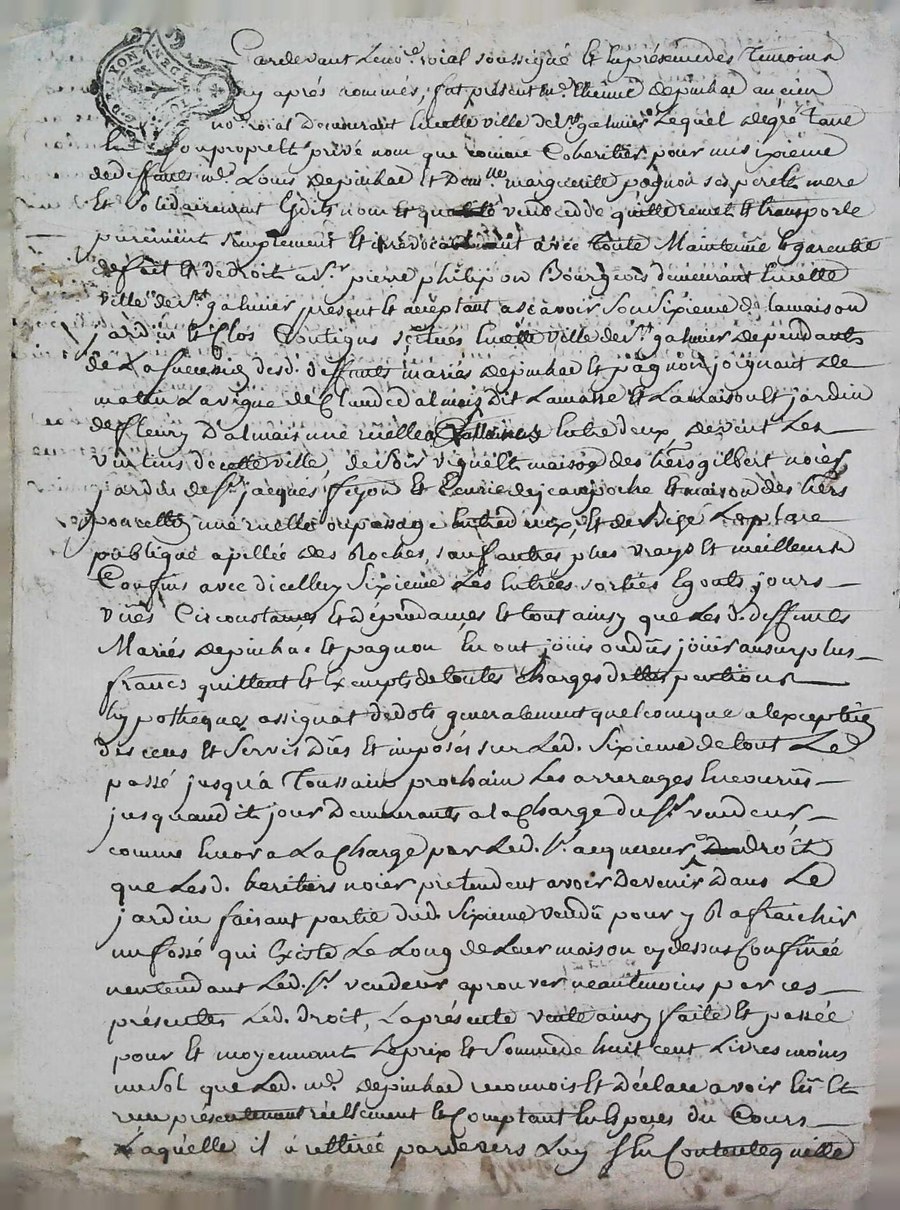 Pardevant Le no.re roial soussigné Et En présence des Temoins
cy aprés nommés, fut présent m.e Etienne depinhac ancien
no.re roial Demeurant En cette ville de S.t galmier Lequel de gré Tant
En son propre Et privé nom que comme Coheritier pour un sixieme
de deffunts m.e Louis depinhac Et Dem.lle marguerite pagnon ses pere Et mere
Et Solidairement Esdits noms Et qualité vend cedde quitte remet Et transporte
purement simplement Et irrévocablement avec toute Maintenüe Et garentie
de fait Et de droit a S.r pierre philipon Bourgeois demeurant En cette
ville de S.t galmier présent Et acceptant ascavoir Son Sixieme de la maison
jardin Et Clos Contigus scitués En cette ville de S.t galmier dependants
de La succession desd. deffunts mariés depinhac Et pagnon joignant de
matin La vigne de Claude dalmais Dit Lamasse Et La maison Et jardin
de fleury Dalmais une ruelle Entre deux, de vent Les
vintins de cette ville, de soir vigne Et maison des hers gilbert noier
jardin de S.r jacques feyon Et Ecurie de jean poche Et maison des hers
une ruelle ou passage Entre deux, Et de Bize La place
publique apellée des Roches, sauf autres plus vrays Et meilleurs
Confins avec dicelluy Sixieme Les Entrées sorties Egouts jours
vües Circonstances Et Dépendances Et tout ainsy que Les d. deffunts
Mariés depinhac Et pagnon En ont jouis ou düs jouir au surplus
francs quittent Et Exempts de toutes Charges dettes pentions
hypotheques assignat de dots generalement quelconque a lexception
des cens Et Servis Dûs Et imposés sur Led. Sixieme de tout Le
passé jusqu'à Toussains prochain Les arrerages Encourus
jusquaudit jour Demeurants a la Charge du S.r vendeur
comme Encor a La Charge par Led. S.r acquereur du droit
que Lesd. heritiers noier pretendent avoir de venir Dans Le
jardin faisant partie dud. Sixieme vendû pour y Rafraichir
un fossé qui Existe Le Long de Leur maison cy dessus Confinée
nentendant Led. S.r vendeur aprouver neantmoins par ces
présentes Led. droit, La présente vente ainsy faite Et passée
pour Et moyennant Le prix Et Somme de huit cent Livres moins
un Sol que Led. m.e depinhac reconnois Et déclare avoir Eü Et
reçu présentement réellement Et Comptant En Especes du Cours
Laquelle il à rettirée pardevers Luy sen Contente quitte